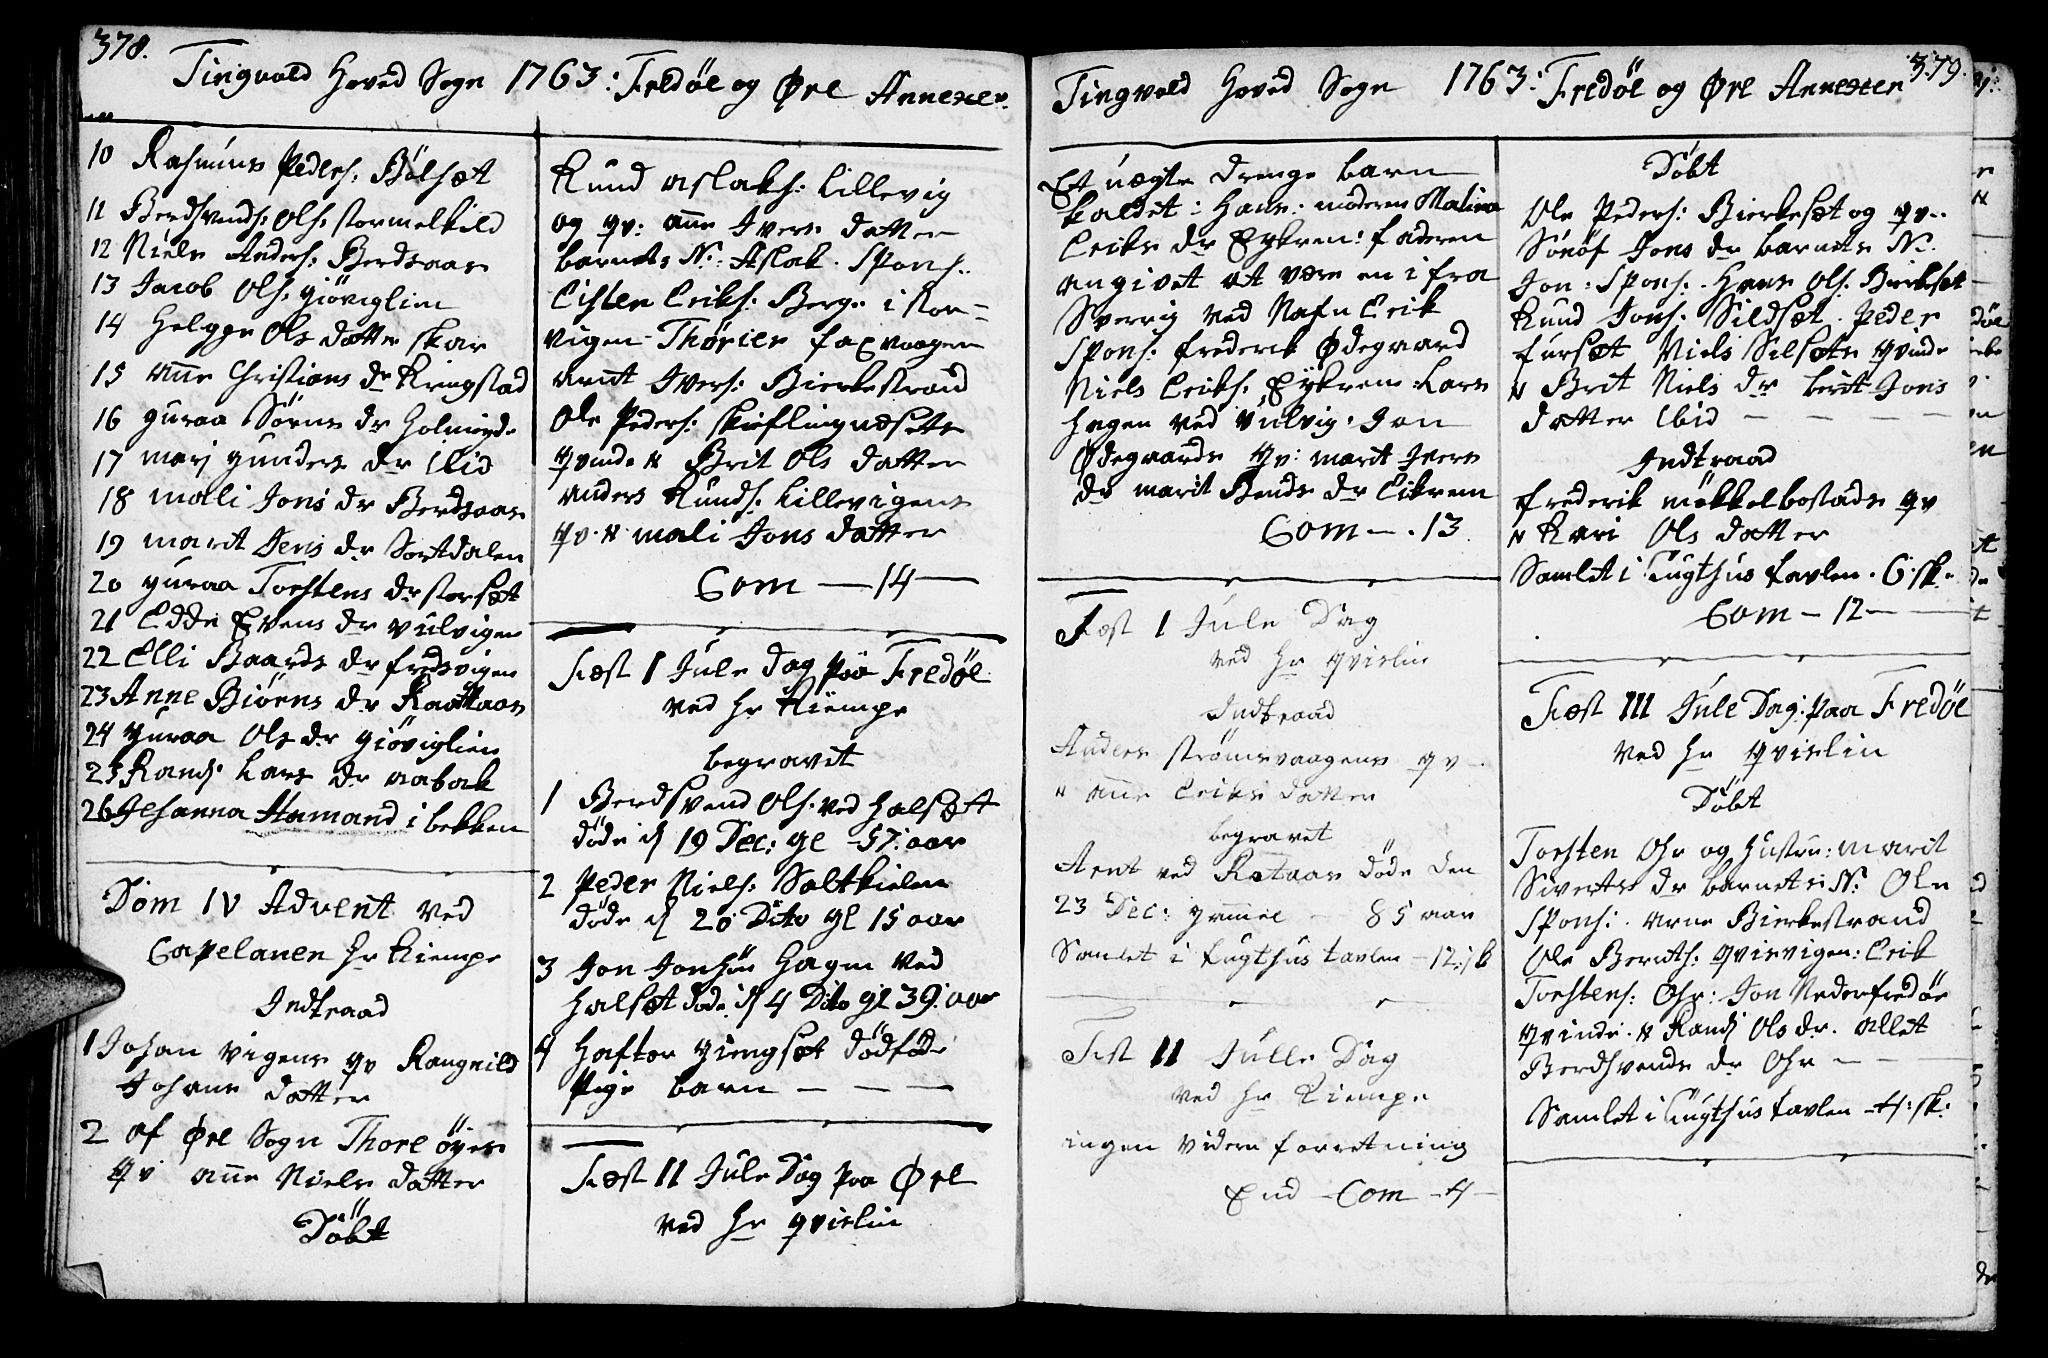 378.
Tingvold Hoved Sogn 1763: Fredöl og Øre Annexer.
10 Rasmuus Peders: Bölsæt
11 Berdsvends: Ols: stormelkild
12 Niels Anders: Berdsaas
13 Jacob Ols: giöviglien
14 Helgge Ols datter skar
15 Añe Christians dr Kringstad
16 guraa Sörens dr Holmejd.
17 marj gunders dr Ibid
18 mali Jons dr Berdsaas
19 marit Jens dr Sortdalen
20 guraa Torstens dr storsæt
21 Edde Evens dr vulvigen
22 Elli Baards dr fredsvigen
23 Anne Biörns dr Raattaas
24 guraa Ols dr giöviglien
25 Randj Lars dr aabak
26 Jehanna Hamand i bekken
Dom IV Advent ved
Capelanen Hr Kiempe
Indtraad
1 Johan vigens qv Rangnild
Johans datter
2 af Øre Sogn Thore öyes
qv añe Niels datter
Döbt
Knud Aslaks: Lillevig
og qv: añe Ivers datter
barnets N: Aslak. Spons:
Eisten Eriks: Berge i stor=
vigen Thörier faxvaagen
arnt Ivers: Bierkestrand
Ole Peders: skieflingnæsets
qvinde N Brit Ols datter
anders Knuds: Lillevigens
qv. N mali Jons datter
Com — 14 —
Fæst I Jule dag paa Fredöl
ved Hr Kiempe
begravit
1 Berdsvend Ols. ved Halsæt
döde d 19 Dec: gl 57: aar
2 Peder Niels: Saltkielen
döde d 20 Dito gl 15 aar
3 Jon Jonsön Hagen ved
Halsæt döde d 4 Dito gl 39: aar
4 Haftor giengsæt dödföde
Pige barn — — —
Fæst II Jule Dag paa Øre
ved Hr qvislin
379.
Tingvold Hoved Sogn 1763: Fredöl og Øre Annexer
Et uægte drenge barn
kaldet: Hans: moderen Malina
Eriks dr Eykrem: faderen
angivet at være en i fra
Sverrig ved Nafn Erik
Spons: frederik Ødegaard
Niels Eriks. Eykrem Lars
Hagen ved vulvig. Jon
Ødegaards qv: marit Ivers
dr marit Bends dr Eikrem
Com — . 13
Fæst I Jule Dag
ved Hr qvislin
Indtraad
Anders strömsvaagens qv
N añe Eriks datter
begravet
Arnt ved Rataas döde den
23 Dec: gamel 85 aar
Samlet i tugthus tavlen — 12: sk
Fest II Julle Dag
ved Hr Kiempe
ingen videre forretning
End — Com — 4 —
Döbt
Ole Peders: Bierkesæt og qv.
Sönöf Jons dr barnets N.
Jon: Spons: Hans Ols. Bierkesæt
Knud Jons. Sildsæt. Peder
fursæt Niels Silsæts qvinde
N Brit Niels dr berit Jons
datter Ibid — — — —
Indtraad
frederik möckelbostads qv
N Kari Ols datter
Samlet i Tugthus tavlen. 6 sk.
Com — 12 —
Fæst III Jule Dag: paa Fredöl
ved Hr qvislin
Döbt
Torsten Ohr og Hustru: marit
Siverts dr barnets N: Ole
Spons: Arne Bierkestrand
Ole Bernts: qvisvigen: Erik
Torstens: Ohr: Jon Nederfredöls
qvinde. N Randj Ols dr. allet
Berdsvends dr Ohr —
Samlet i Tugthus tavlen — 4: sk: